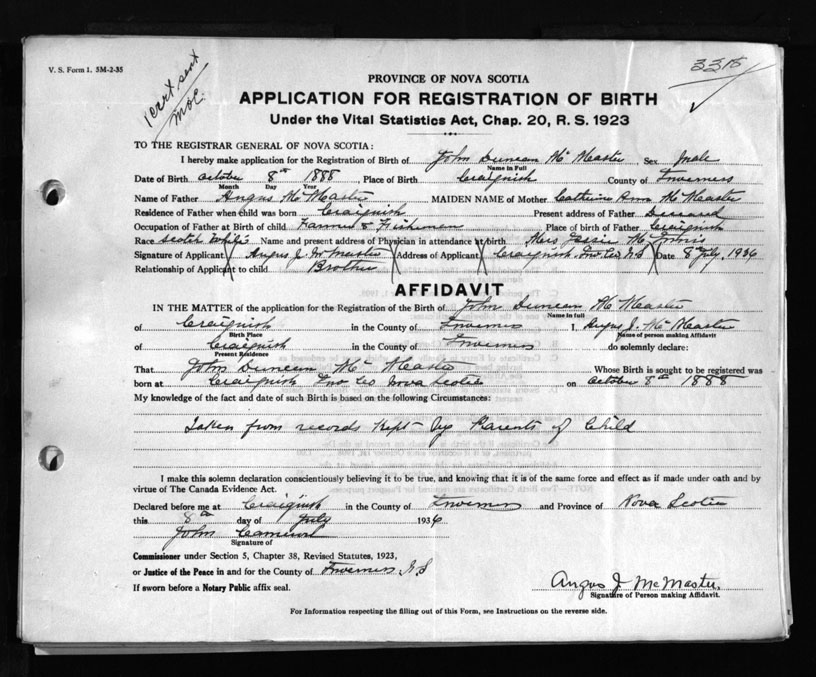 V. S. Form 1. 5M-2-35
1 cert sent
3315
PROVINCE OF NOVA SCOTIA
APPLICATION FOR REGISTRATION OF BIRTH
Under the Vital Statistics Act, Chap. 20, R. S. 1923
TO THE REGISTRAR GENERAL OF NOVA SCOTIA:
I hereby make application for the Registration of Birth of John Duncan Mc Master, Sex male
Name in Full
Date of Birth October 8th 1888, Place of Birth Craignish County of Inverness
Month Day Year
Name of Father Angus Mc Master MAIDEN NAME of Mother Catherine Ann Mc Master
Residence of Father when child was born Craignish Present address of Father Deceased
Occupation of Father at Birth of child Farmer & Fisherman Place of birth of Father Craignish
Race Scotch White Name and present address of Physician in attendance at birth Mrs Jessie Mc Innis
Signature of Applicant Angus J. McMaster Address of Applicant Craignish, Inv. Co. N.S Date 8 July, 1936
Relationship of Applicant to child Brother
AFFIDAVIT
IN THE MATTER of the application for the Registration of the Birth of John Duncan Mc Master
Name in full
of Craignish in the County of Inverness I, Angus J. Mc Master
Birth Place Name of person making Affidavit
of Craignish in the County of Inverness do solemnly declare:
Present Residence
That John Duncan Mc Master Whose Birth is sought to be registered was
born at Craignish Inv Co Nova Scotia on October 8th 1888
My knowledge of the fact and date of such Birth is based on the following Circumstances:
Taken from records kept by Parents of Child
I make this solemn declaration conscientiously believing it to be true, and knowing that it is of the same force and effect as if made under oath and by
virtue of The Canada Evidence Act.
Declared before me at Craignish in the County of Inverness and Province of Nova Scotia
this 8th day of July 1936
John
Signature of
Commissioner under Section 5, Chapter 38, Revised Statutes, 1923,
or Justice of the Peace in and for the County of Inverness N.S
If sworn before a Notary Public affix seal.
Angus J McMaster.
Signature of Person making Affidavit.
For Information respecting the filling out of this Form, see Instructions on the reverse side.